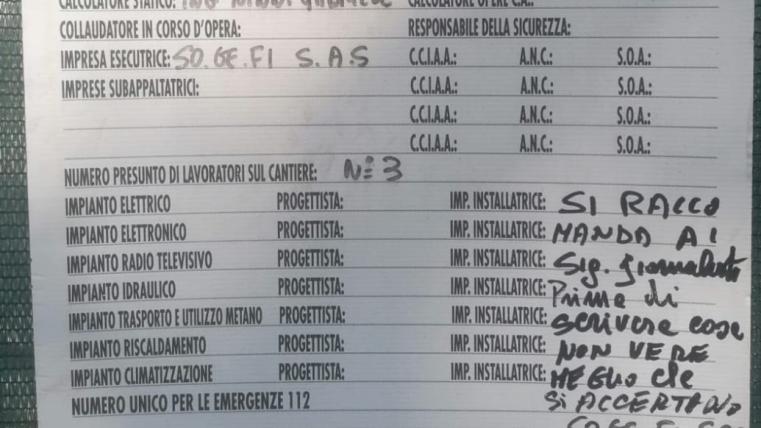 CALCOLATORE STATICO: ING
COLLAUDATORE IN CORSO D'OPERA: RESPONSABILE DELLA SICUREZZA:
IMPRESA ESECUTRICE: SO.GE.FI S.A.S C.C.I.A.A.: A.N.C.: S.O.A.:
IMPRESE SUBAPPALTATRICI: C.C.I.A.A.: A.N.C.: S.O.A.:
C.C.I.A.A.: A.N.C.: S.O.A.:
C.C.I.A.A.: A.N.C.: S.O.A.:
NUMERO PRESUNTO DI LAVORATORI SUL CANTIERE: N° 3
IMPIANTO ELETTRICO PROGETTISTA: IMP. INSTALLATRICE: SI RACCO
IMPIANTO ELETTRONICO PROGETTISTA: IMP. INSTALLATRICE: MANDA AI
IMPIANTO RADIO TELEVISIVO PROGETTISTA: IMP. INSTALLATRICE: Sig. giornalisti
IMPIANTO IDRAULICO PROGETTISTA: IMP. INSTALLATRICE: Prima di
IMPIANTO TRASPORTO E UTILIZZO METANO PROGETTISTA: IMP. INSTALLATRICE: scrivere cose
IMPIANTO RISCALDAMENTO PROGETTISTA: IMP. INSTALLATRICE: NON VERE
IMPIANTO CLIMATIZZAZIONE PROGETTISTA: IMP. INSTALLATRICE: MEGLIO che
NUMERO UNICO PER LE EMERGENZE 112 si ACCERTANO